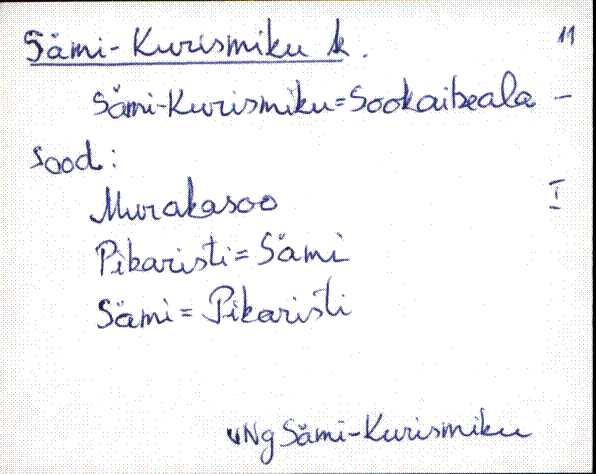 Sämi-Kurismiku k. 11
Sämi-Kurismiku=Sookaibeala -
sood:
Murakasoo I
Pikaristi=Sämi
Sämi=Pikaristi
VNg Sämi-Kurismiku